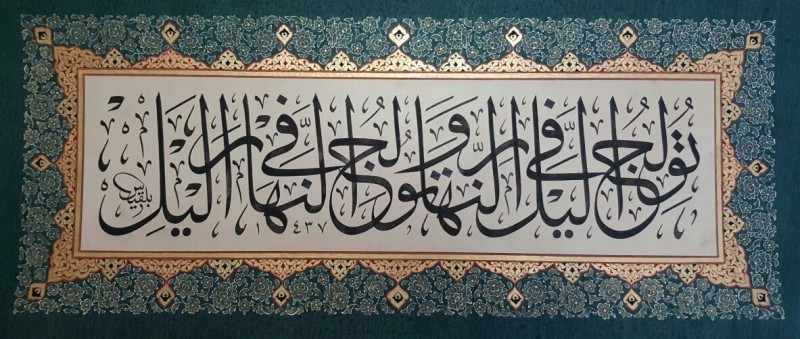 تُولِجُ الَّيْلَ فِي النَّهَارِ وَتُولِجُ النَّهَارَ فِي الَّيْلِ
بلقيس
١٤٣٧